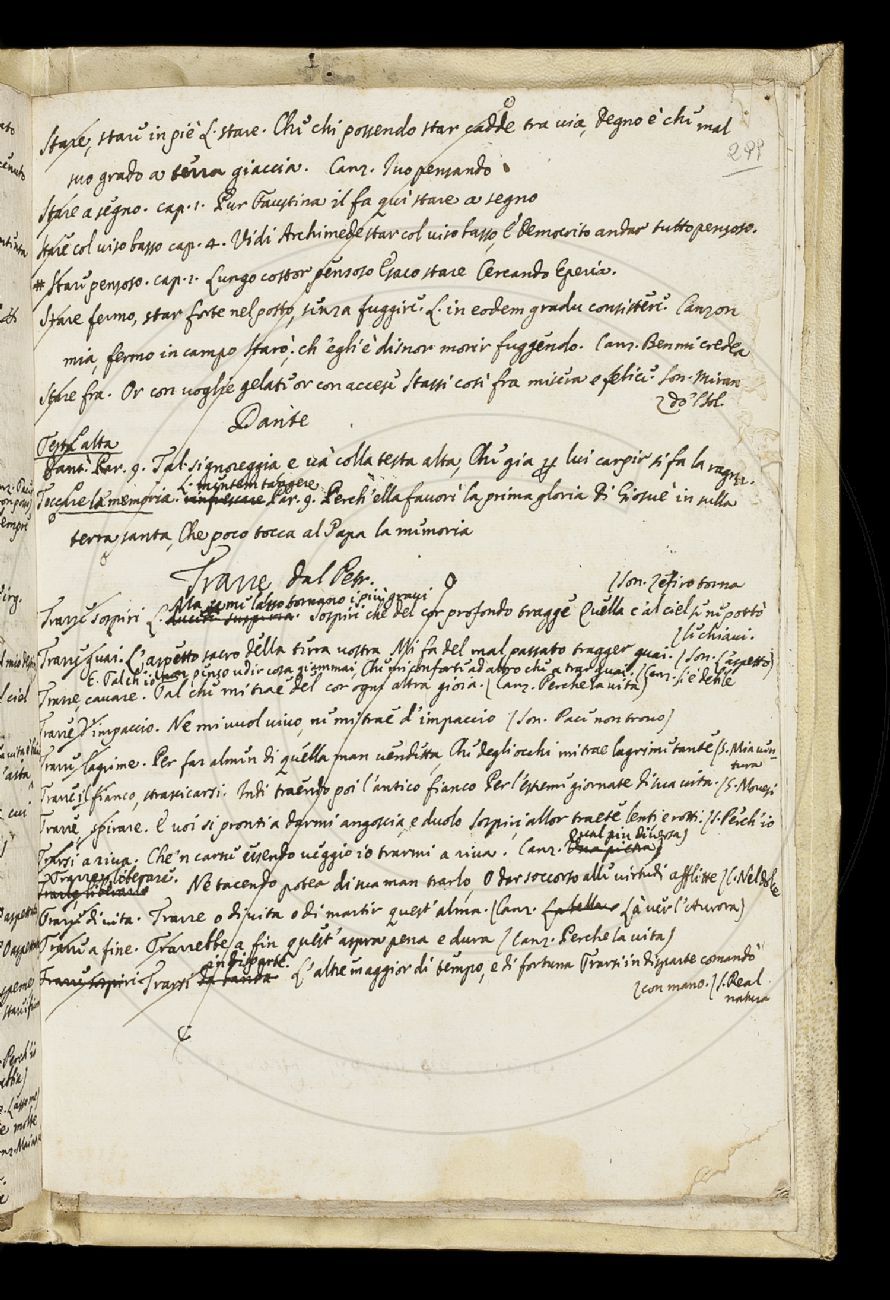 Stare, stare in piè L. stare. Che chi possendo star cadde tra via, degno è che mal
suo grado a terra giaccia. Canz. Iuo pensando
299
Stare a segno. cap. 1. Pur Faustina il fa qui stare a segno
Stare col viso basso cap. 4. Vidi Archimede star col viso basso, E Democrito andar tutto pensoso.
# Stare pensoso. cap. 2. Lungo costor pensoso Esaco stare Cercando Eperia.
Stare fermo, star forte nel posto, senza fuggire. L. in eodem gradu consistere. Canzon
mia, fermo in campo starò; ch'egli è disnor morir fuggendo. Canz. Ben mi credea
Stare fra. Or con voglie gelate or con accese Stassi così fra misera e felice. Son. Miran
do'l sol.
Dante
Testa alta
Dant. Par. 9. Tal signoreggia e và colla testa alta, Che gia per lui carpir si fa la ragna.
L. mentem tangere
Toccare la memoria. Par. 9. Perch'ella favorì la prima gloria Di Giosuè in sulla
terra santa, Che poco tocca al Papa la memoria
Trarre dal Petr.
Son. Zefiro torna
Ma per me lasso tornano i più gravi
Trarre sospiri L. Sospiri che del cor profondo tragge Quella c'al ciel se ne portò
le chiavi.
Trarre guai. L'aspetto sacro della terra vostra Mi fa del mal passato tragger guai. (Son. L'aspetto)
E. Talch'io non penso udir cosa giammai, Che mi conforte ad altro che a trar guai. (Canz. Si è debile
Trarre, cavare. Tal che mi trae del cor ogni altra gioia. (Canz. Perche la vita)
Trarre d'impaccio. Ne mi vuol vivo, ne mi trae d'impaccio (Son. Pace non trovo)
Trarre lagrime. Per far almen di quella man vendetta, Che degli occhi mi trae lagrime tante (S. Mia ven-
tura
Trarre il fianco, strascicarsi. Indi traendo poi l'antico fianco Per l'estreme giornate di sua vita. (S. Movesi
Trarre, spirare. E voi si pronti a darmi angoscia, e duolo Sospiri, allor traete lenti e rotti. (S. Perch'io
Qual più diversa)
Trarsi a riva. Che'n carne essendo veggio io trarmi a riva. Canz.
Trarre, liberare. Nè tacendo potea di sua man trarlo, O dar soccorso alle virtudi afflitte (C. Nel dolce
Trarre di vita. Trarre o di vita o di martir quest'alma. (Canz. Là ver l'Aurora)
Trarre a fine. Trarrebbe a fin quest'aspra pena e dura (Canz. Perche la vita)
in disparte.
Trarsi L'altre maggior di tempo, e di fortuna Trarsi in disparte comandò
con mano. (S. Real
natura